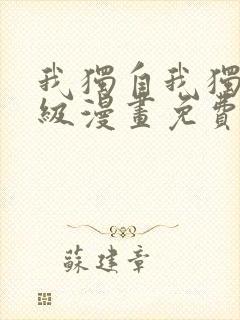 我獨自我獨
級漫畫免費
蘇建章